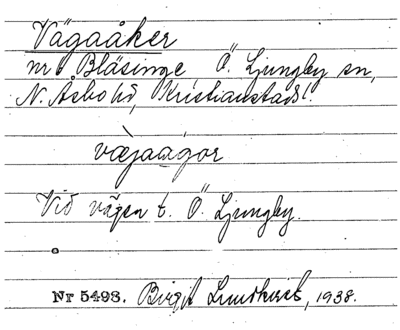 Vägaåker
nr Bläsinge Ö. Ljungby sn,
N. Åsbo hd, Kristianstads l.
vægaagor
Vid vägen t. Ö. Ljungby.
Nr 5493. Birgit Lundkvist, 1938.